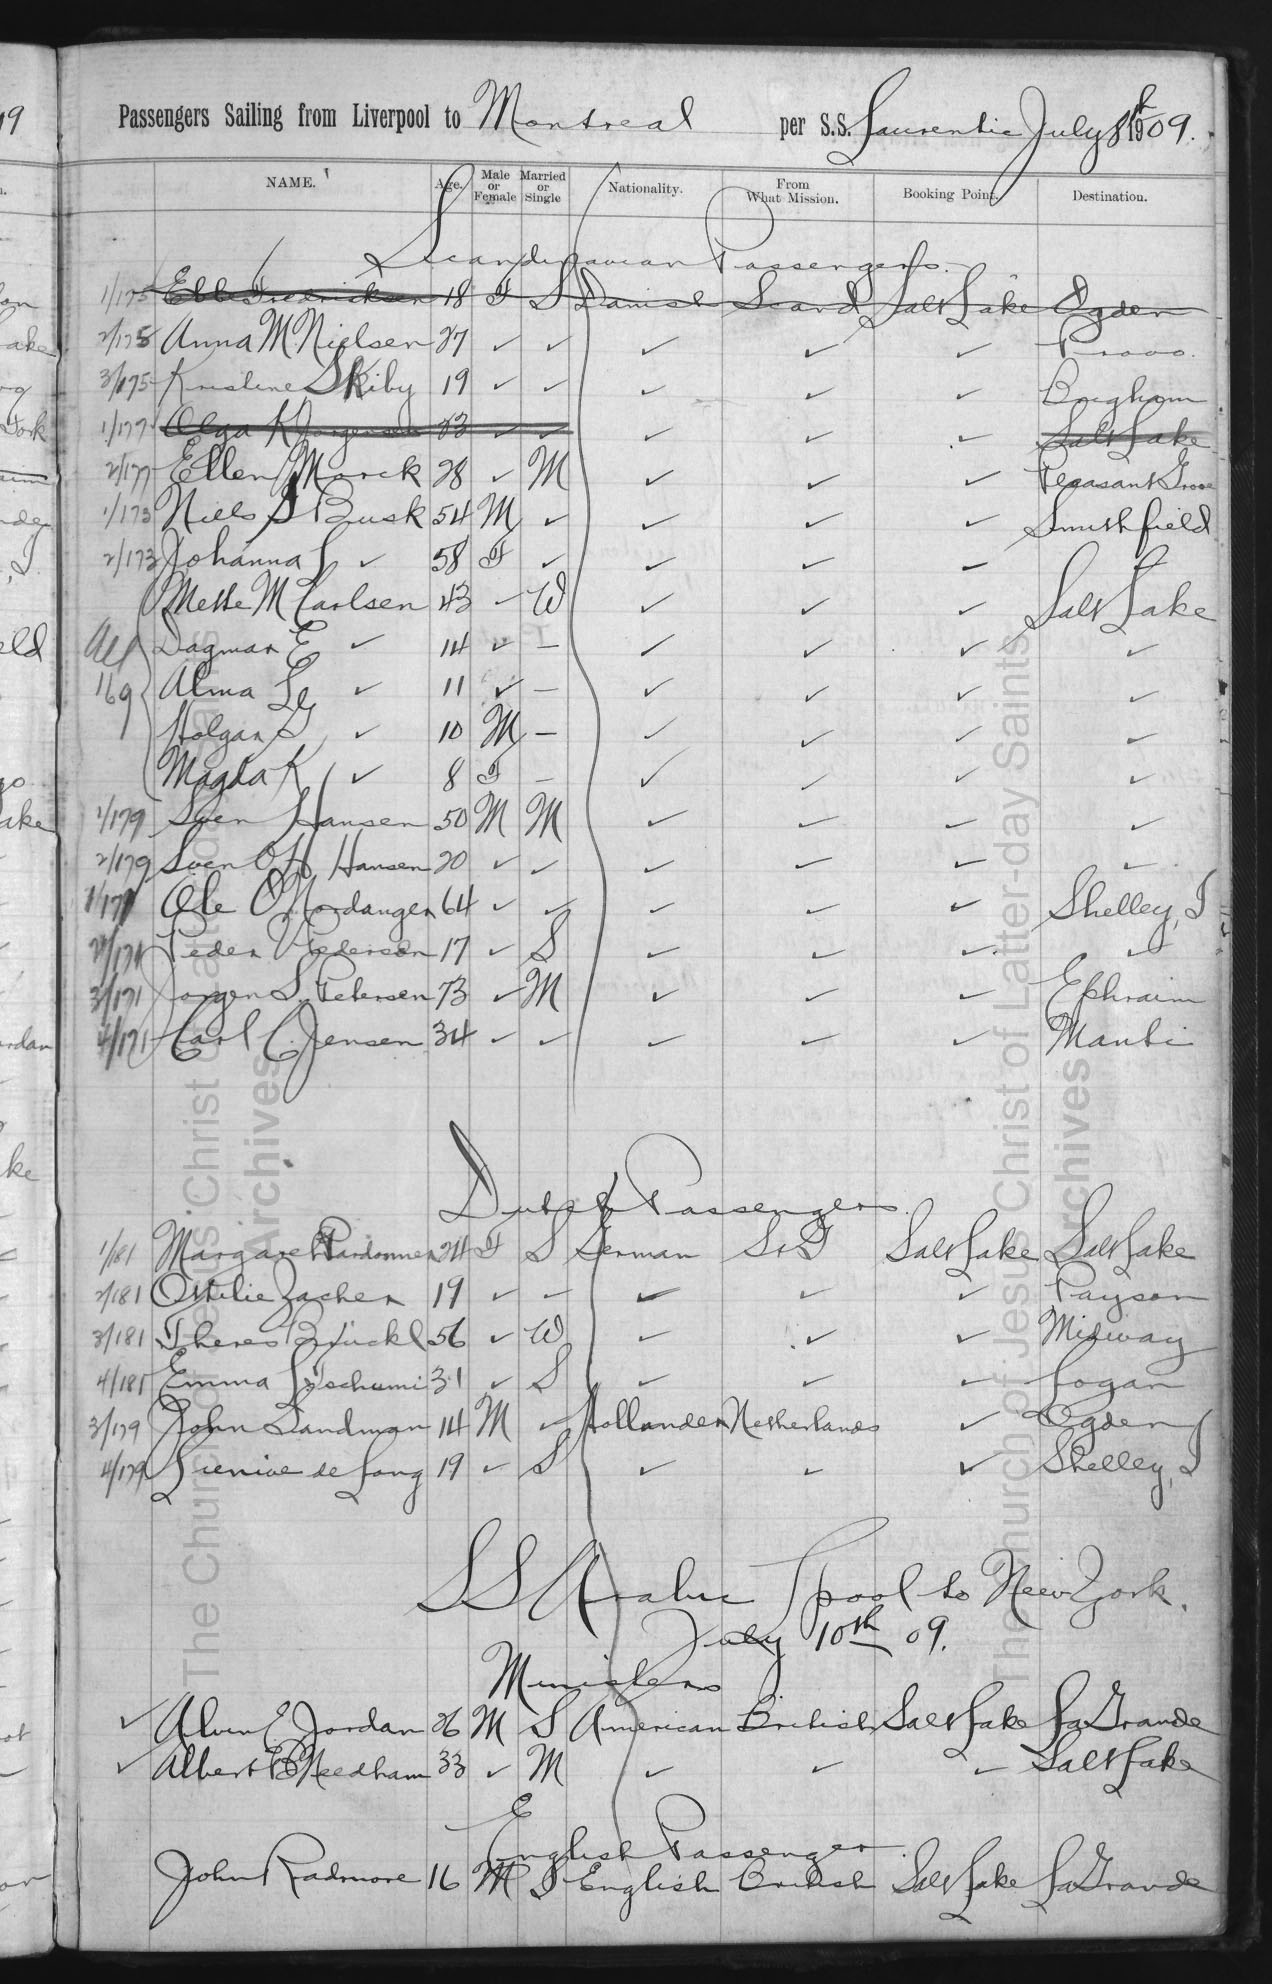 Passengers Sailing from Liverpool to Montreal per S.S. Laurentic July 8th 1909.
NAME. Age. Male or Female Married or Single Nationality. From What Mission. Booking Point. Destination.
Scandinavian Passengers.
1/175 Ebbe Fredricksen 18 F S Danish Scand Salt Lake Ogden
2/175 Anna M Nielsen 27 ✓ ✓ ✓ ✓ ✓ Provo.
3/175 Kristine Skiby 19 ✓ ✓ ✓ ✓ ✓ Brigham
1/177 Olga K Jorgensen 23 ✓ ✓ ✓ ✓ ✓ Salt Lake
2/177 Ellen Marck 28 ✓ M ✓ ✓ ✓ Pleasant Grove
1/173 Niels J Busk 54 M ✓ ✓ ✓ ✓ Smithfield
2/173 Johanna L ✓ 58 F ✓ ✓ ✓ ✓ ✓
Mette M Carlsen 43 ✓ W ✓ ✓ ✓ Salt Lake
All Dagmar E ✓ 14 ✓ – ✓ ✓ ✓ ✓
169 Alma ✓ 11 ✓ – ✓ ✓ ✓ ✓
Holgar G ✓ 10 M – ✓ ✓ ✓ ✓
Magda K ✓ 8 F – ✓ ✓ ✓ ✓
1/179 Sven Hansen 50 M M ✓ ✓ ✓ ✓
2/179 Sven O H Hansen 20 ✓ ✓ ✓ ✓ ✓ ✓
1/171 Ole O Nordanger 64 ✓ ✓ ✓ ✓ ✓ Shelley, I
2/171 Peder V Pedersen 17 ✓ S ✓ ✓ ✓ ✓
3/171 Jorgen S. Petersen 73 ✓ M ✓ ✓ ✓ Ephraim
4/171 Carl C. Jensen 34 ✓ ✓ ✓ ✓ ✓ Manti
Dutch Passengers.
1/181 Margaret 24 F S German S & G Salt Lake Salt Lake
2/181 Ottilie Zacher 19 ✓ ✓ ✓ ✓ ✓ Payson
3/181 Theres Brückl 56 ✓ W ✓ ✓ ✓ Midway
4/181 Emma 31 ✓ S ✓ ✓ ✓ Logan
3/179 John Sandman 14 M ✓ Hollander Netherlands ✓ Ogden
4/179 de Jong 19 ✓ S ✓ ✓ ✓ Shelley, I
S S Arabic Lpool to New York.
July 10th 09.
Ministers
✓ Alvin E Jordan 26 M S American British Salt Lake La Grande
✓ Albert B Needham 33 ✓ M ✓ ✓ ✓ Salt Lake
English Passenger
John Radmore 16 M S English British Salt Lake La Grande
The Church of Jesus Christ of Latter-day Saints
Archives
The Church of Jesus Christ of Latter-day Saints
Archives